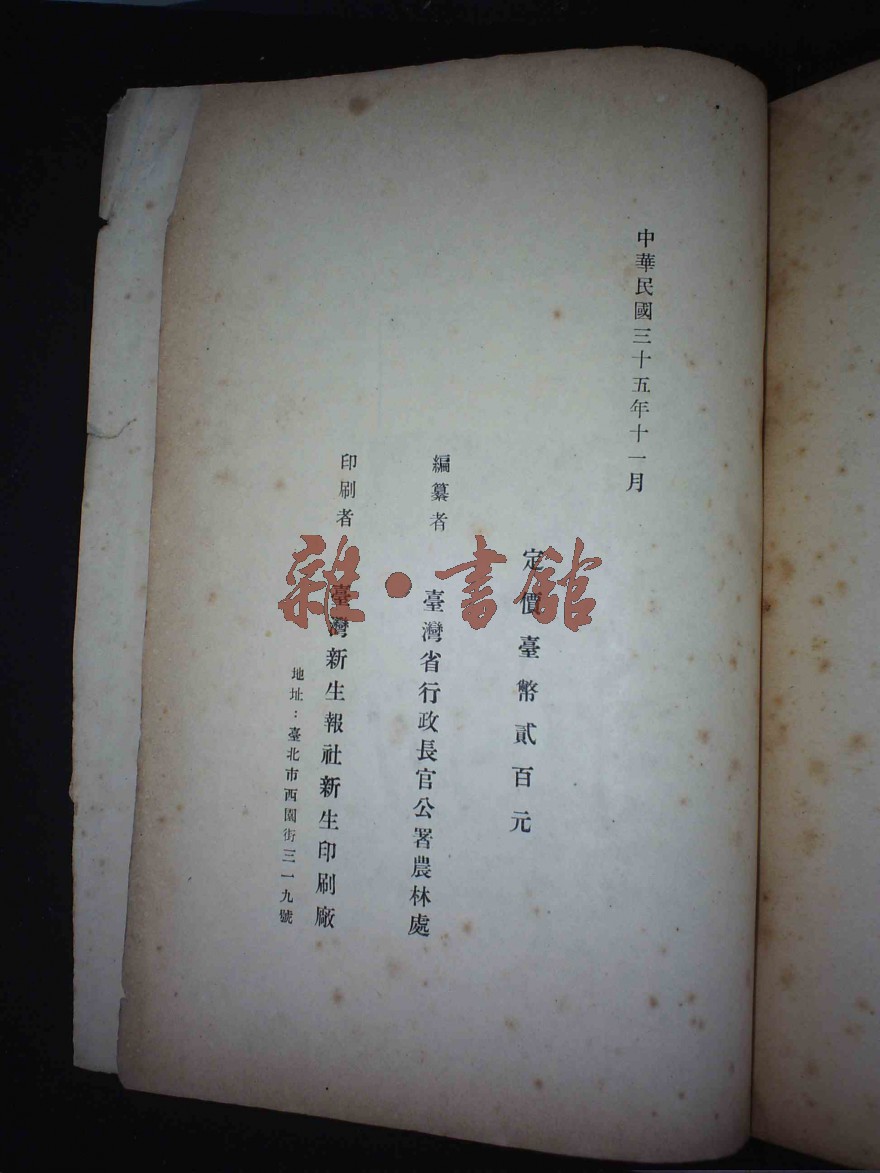 中華民國三十五年十一月
定價臺幣貳百元
編纂者 臺灣省行政長官公署農林處
印刷者 臺灣新生報社新生印刷廠
地址：臺北市西園街三一九號
雜·書館